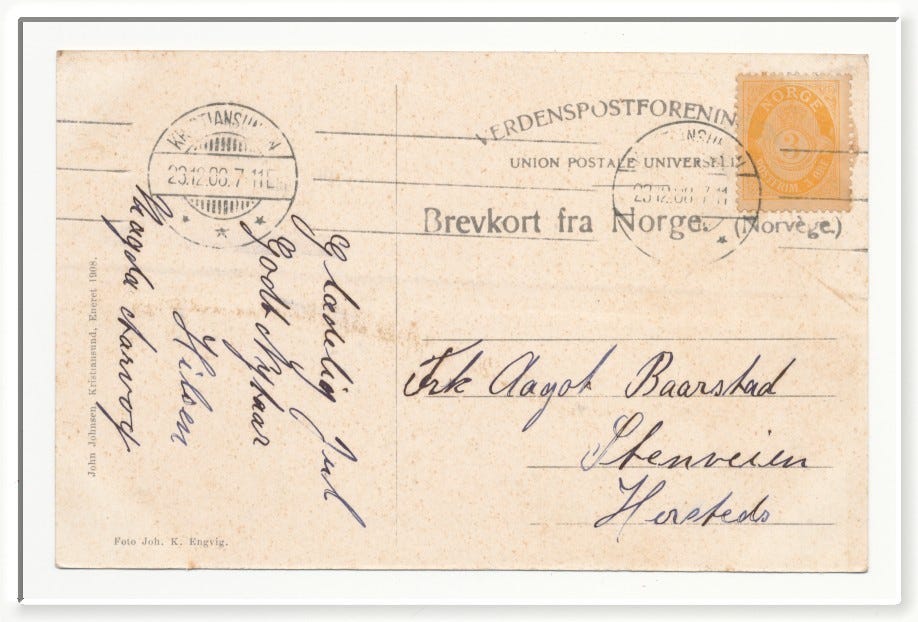 VERDENSPOSTFORENIN
UNION POSTALE UNIVERSELLE
Brevkort fra Norge. (Norvège.)
NORGE
3
KRISTIANSUND N
23.12.08.7-11E
KRISTIANSUND N
23.12.08.7-11
Glædelig Jul
Godt Nytaar
Hilsen
Magda
Frk Aagot Baarstad
Stenveien
Hersteds
John Johnsen, Kristiansund, Eneret 1908.
Foto Joh. K. Engvig.